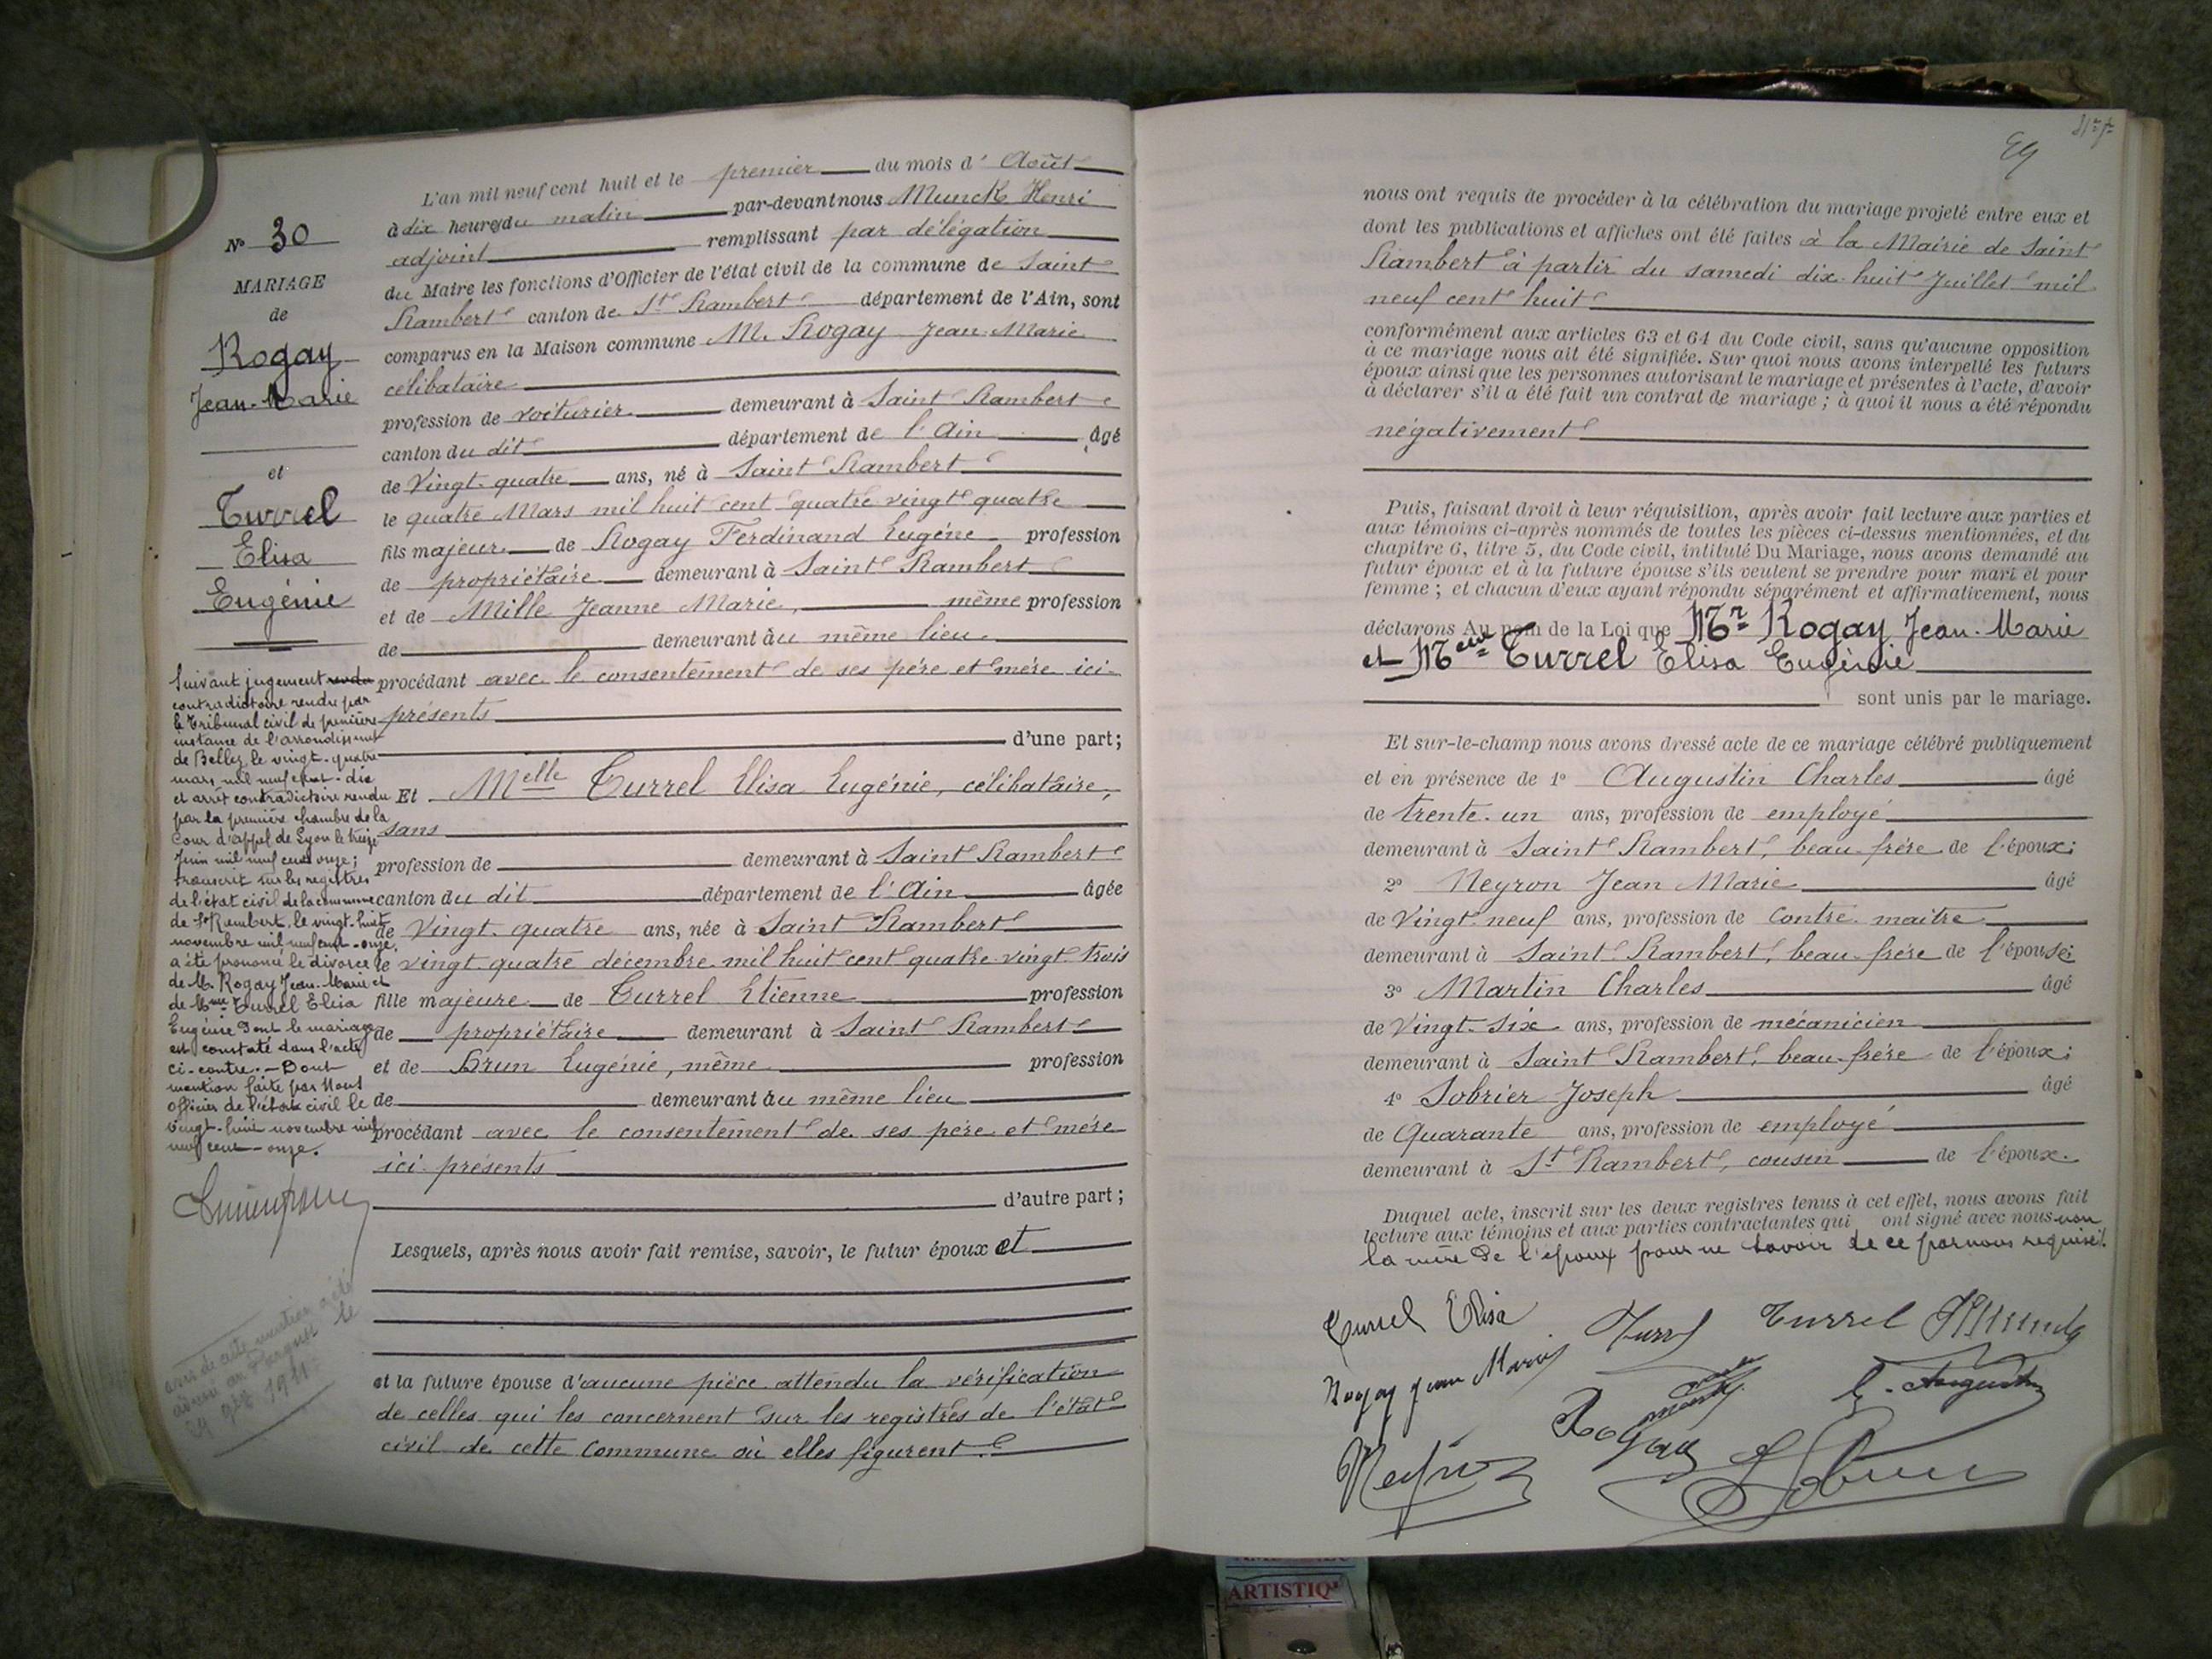 N° 30
MARIAGE
de
Rogay
Jean-Marie
et
Turrel
Elisa
Eugénie
Suivant jugement rendu
contradictoire rendu par
le Tribunal civil de première
instance de l'arrondissement
de Belley, le vingt-quatre
mars mil neuf cent-dix
et arrêt contradictoire rendu
par la première chambre de la
Cour d'appel de Lyon le treize
Juin mil neuf cent onze;
transcrit sur les registres
de l'état civil de la commune
de St Rambert, le vingt-huit
novembre mil neuf cent-onze,
a été prononcé le divorce
de M. Rogay Jean-Marie et
de Mme Turrel Elisa
Eugénie dont le mariage
est constaté dans l'acte
ci-contre.- Dont
mention faite par Nous
Officier de l'état civil le
vingt-huit novembre mil
neuf cent-onze.
avis de cette mention a été
au Parquet le
1911
L'an mil neuf cent huit et le premier du mois d' Août
à dix heures du matin par-devant nous Munck Henri
adjoint remplissant par délégation
du Maire les fonctions d'Officier de l'état civil de la commune de Saint
Rambert canton de St Rambert département de l'Ain, sont
comparus en la Maison commune M. Rogay Jean-Marie
célibataire
profession de voiturier demeurant à Saint Rambert
canton du dit département de l'Ain âgé
de Vingt-quatre ans, né à Saint Rambert
le quatre Mars mil huit cent quatre vingt quatre
fils majeur de Rogay Ferdinand Eugène profession
de propriétaire demeurant à Saint Rambert
et de Mille Jeanne Marie, même profession
de demeurant au même lieu
procédant avec le consentement de ses père et mère ici-
présents
d'une part;
Et Melle Turrel Elisa Eugénie, célibataire,
sans
profession de demeurant à Saint Rambert
canton du dit département de l'Ain âgée
de Vingt-quatre ans, née à Saint Rambert
le vingt-quatre décembre mil huit cent quatre-vingt trois
fille majeure de Turrel Etienne profession
de propriétaire demeurant à Saint Rambert
et de Brun Eugénie, même profession
de demeurant au même lieu
procédant avec le consentement de ses père et mère
ici présents
d'autre part;
Lesquels, après nous avoir fait remise, savoir, le futur époux et
et la future épouse d'aucune pièce attendu la vérification
de celles qui les concernent sur les registres de l'état
civil de cette commune où elles figurent.
nous ont requis de procéder à la célébration du mariage projeté entre eux et
dont les publications et affiches ont été faites à la Mairie de Saint
Rambert à partir du samedi dix-huit Juillet mil
neuf cent huit
conformément aux articles 63 et 64 du Code civil, sans qu'aucune opposition
à ce mariage nous ait été signifiée. Sur quoi nous avons interpellé les futurs
époux ainsi que les personnes autorisant le mariage et présentes à l'acte, d'avoir
à déclarer s'il a été fait un contrat de mariage; à quoi il nous a été répondu
négativement
Puis, faisant droit à leur réquisition, après avoir fait lecture aux parties et
aux témoins ci-après nommés de toutes les pièces ci-dessus mentionnées, et du
chapitre 6, titre 5, du Code civil, intitulé Du Mariage, nous avons demandé au
futur époux et à la future épouse s'ils veulent se prendre pour mari et pour
femme; et chacun d'eux ayant répondu séparément et affirmativement, nous
déclarons Au nom de la Loi que Mr Rogay Jean-Marie
et Melle Turrel Elisa Eugénie
sont unis par le mariage.
Et sur-le-champ nous avons dressé acte de ce mariage célébré publiquement
et en présence de 1° Augustin Charles âgé
de trente-un ans, profession de employé
demeurant à Saint Rambert, beau-frère de l'époux;
2° Neyron Jean Marie âgé
de Vingt neuf ans, profession de contre-maître
demeurant à Saint Rambert, beau-frère de l'épouse;
3° Martin Charles âgé
de Vingt-six ans, profession de mécanicien
demeurant à Saint Rambert, beau-frère de l'époux;
4° Sobrier Joseph âgé
de Quarante ans, profession de employé
demeurant à St Rambert, cousin de l'époux.
Duquel acte, inscrit sur les deux registres tenus à cet effet, nous avons fait
lecture aux témoins et aux parties contractantes qui ont signé avec nous non
la mère de l'époux pour ne savoir de ce par nous requise.
Turrel Elisa
Turrel
Turrel
Rogay Jean Marie
Rogay
Augustin
ARTISTIQ